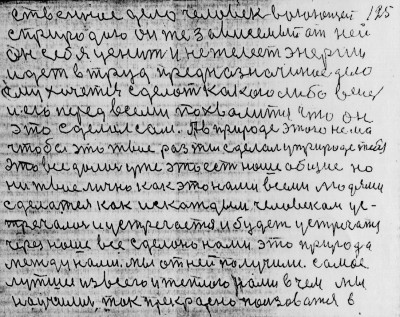 ственное дело человек воюющей 185
с природою он же зависемый от ней
он себя ценит и нежелеет энергии
идет в труд предназначиное дело
ему хочится сделат какоголибо вещ
и его перед всеми похвалится что он
это сделал сам. А в природе этого нема
чтобы это твое раз ты сделал у природе тебя
это все долиц уже это есть наше общие но
ни твое лично как это нами всеми людями
сделается как и с каждим человеком ус-
тречалос и устречается и будет устричатся
через наше все сделоно нами это природа
между нами. мы от ней получили. самое
лутшие из всего и теплого нами в чем мы
научилис так прекрасно ползоватся в